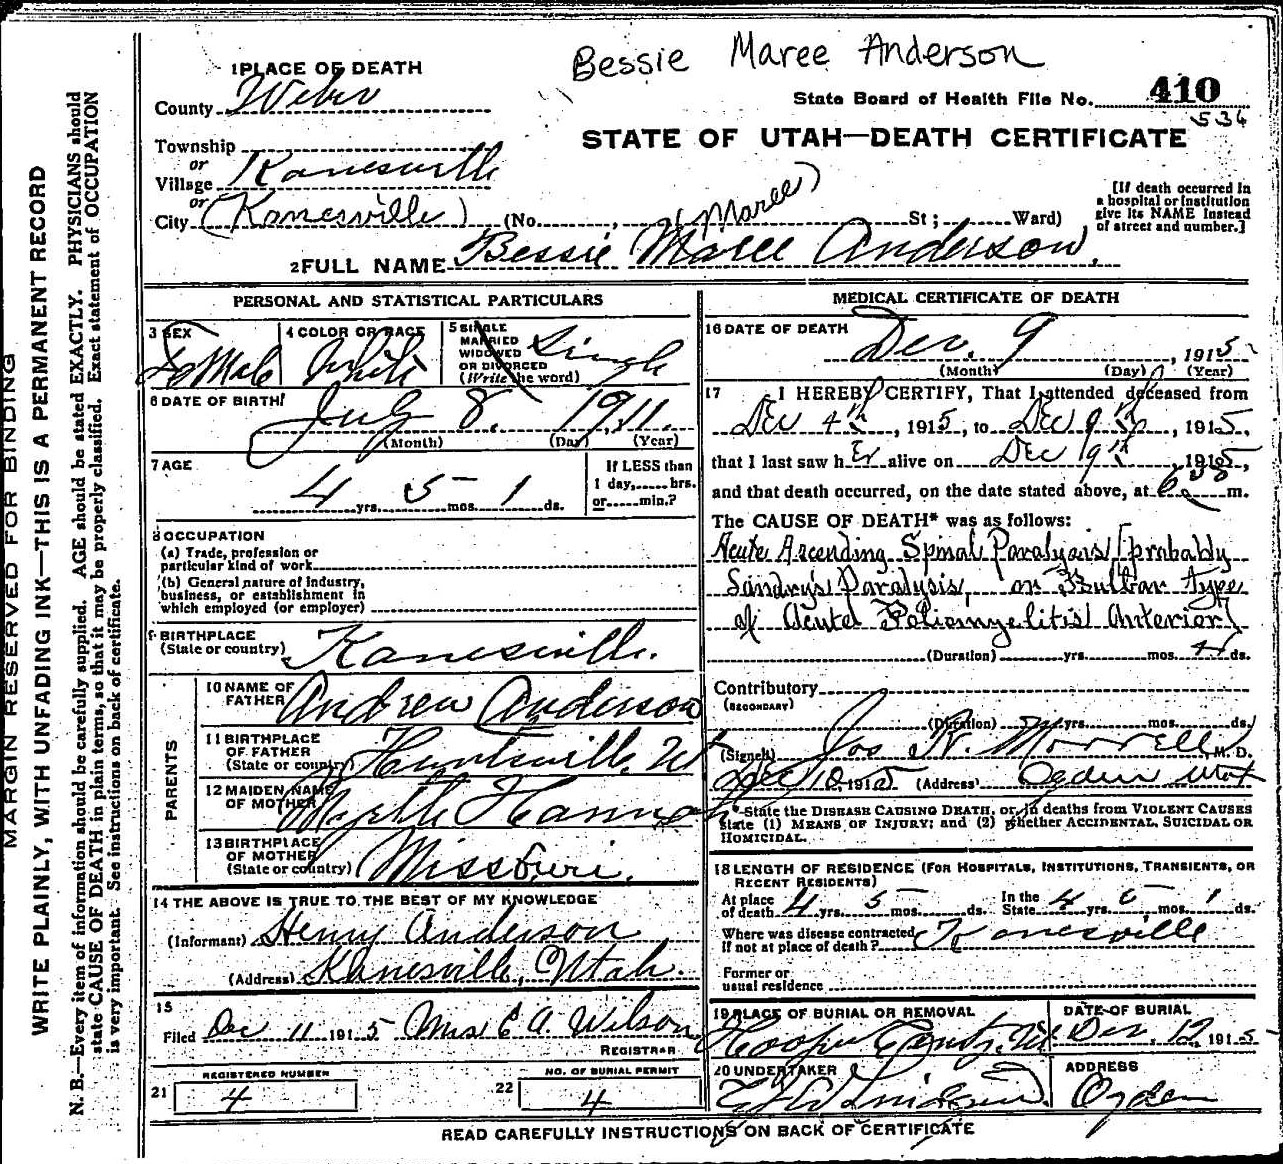 Bessie Maree Anderson
1 PLACE OF DEATH
County Weber
State Board of Health File No. 410
536
STATE OF UTAH—DEATH CERTIFICATE
Township
or
Village Kanesville
or
City (Kanesville) (No. , St; Ward)
(Maree)
[If death occurred in
a hospital or institution
give its NAME instead
of street and number.]
2 FULL NAME Bessie Maree Anderson.
PERSONAL AND STATISTICAL PARTICULARS
3 SEX
FeMale
4 COLOR OR RACE
White
5 SINGLE
MARRIED
WIDOWED
OR DIVORCED
(Write the word)
Single
6 DATE OF BIRTH
July 8. 1911.
(Month) (Day) (Year)
7 AGE
4 yrs. 5 mos. 1 ds.
If LESS than
1 day, hrs.
or min.?
8 OCCUPATION
(a) Trade, profession or
particular kind of work
(b) General nature of industry,
business, or establishment in
which employed (or employer)
9 BIRTHPLACE
(State or country) Kanesville.
PARENTS
10 NAME OF
FATHER Andrew Anderson
11 BIRTHPLACE
OF FATHER
(State or country) Huntsville, Ut
12 MAIDEN NAME
OF MOTHER Myrtle Hannah
13 BIRTHPLACE
OF MOTHER
(State or country) Missouri.
14 THE ABOVE IS TRUE TO THE BEST OF MY KNOWLEDGE
(Informant) Henry Anderson
(Address) Kanesville, Utah.
15
Filed Dec 11 1915 Mrs E A. Wilson
REGISTRAR
21 REGISTERED NUMBER
4
22 NO. OF BURIAL PERMIT
4
MEDICAL CERTIFICATE OF DEATH
16 DATE OF DEATH
Dec. 9, 1915
(Month) (Day) (Year)
17 I HEREBY CERTIFY, That I attended deceased from
Dec 4th, 1915, to Dec 9th, 1915,
that I last saw hEr alive on Dec 9th, 1915,
and that death occurred, on the date stated above, at m.
The CAUSE OF DEATH* was as follows:
Acute Ascending Spinal Paralysis (probably
Landry's Paralysis, or Bulbar type
of Acute Poliomyelitis Anterior)
(Duration) yrs. mos. 4 ds.
Contributory
(SECONDARY)
(Duration) yrs. mos. ds.
(Signed) Jos R. Morrell, M. D.
Dec 10, 1915 (Address) Ogden Utah
*State the DISEASE CAUSING DEATH, or, in deaths from VIOLENT CAUSES
state (1) MEANS OF INJURY; and (2) whether ACCIDENTAL, SUICIDAL OR
HOMICIDAL.
18 LENGTH OF RESIDENCE (FOR HOSPITALS, INSTITUTIONS, TRANSIENTS, OR
RECENT RESIDENTS)
At place
of death 4 yrs. 5 mos. ds. In the
State 4 yrs. 5 mos. 1 ds.
Where was disease contracted,
if not at place of death? Kanesville
Former or
usual residence
19 PLACE OF BURIAL OR REMOVAL
Hooper Ut
DATE OF BURIAL
Dec. 12, 1915
20 UNDERTAKER
ADDRESS
Ogden
READ CAREFULLY INSTRUCTIONS ON BACK OF CERTIFICATE
MARGIN RESERVED FOR BINDING
WRITE PLAINLY, WITH UNFADING INK—THIS IS A PERMANENT RECORD
N. B.—Every item of information should be carefully supplied. AGE should be stated EXACTLY. PHYSICIANS should
state CAUSE OF DEATH in plain terms, so that it may be properly classified. Exact statement of OCCUPATION
is very important. See instructions on back of certificate.